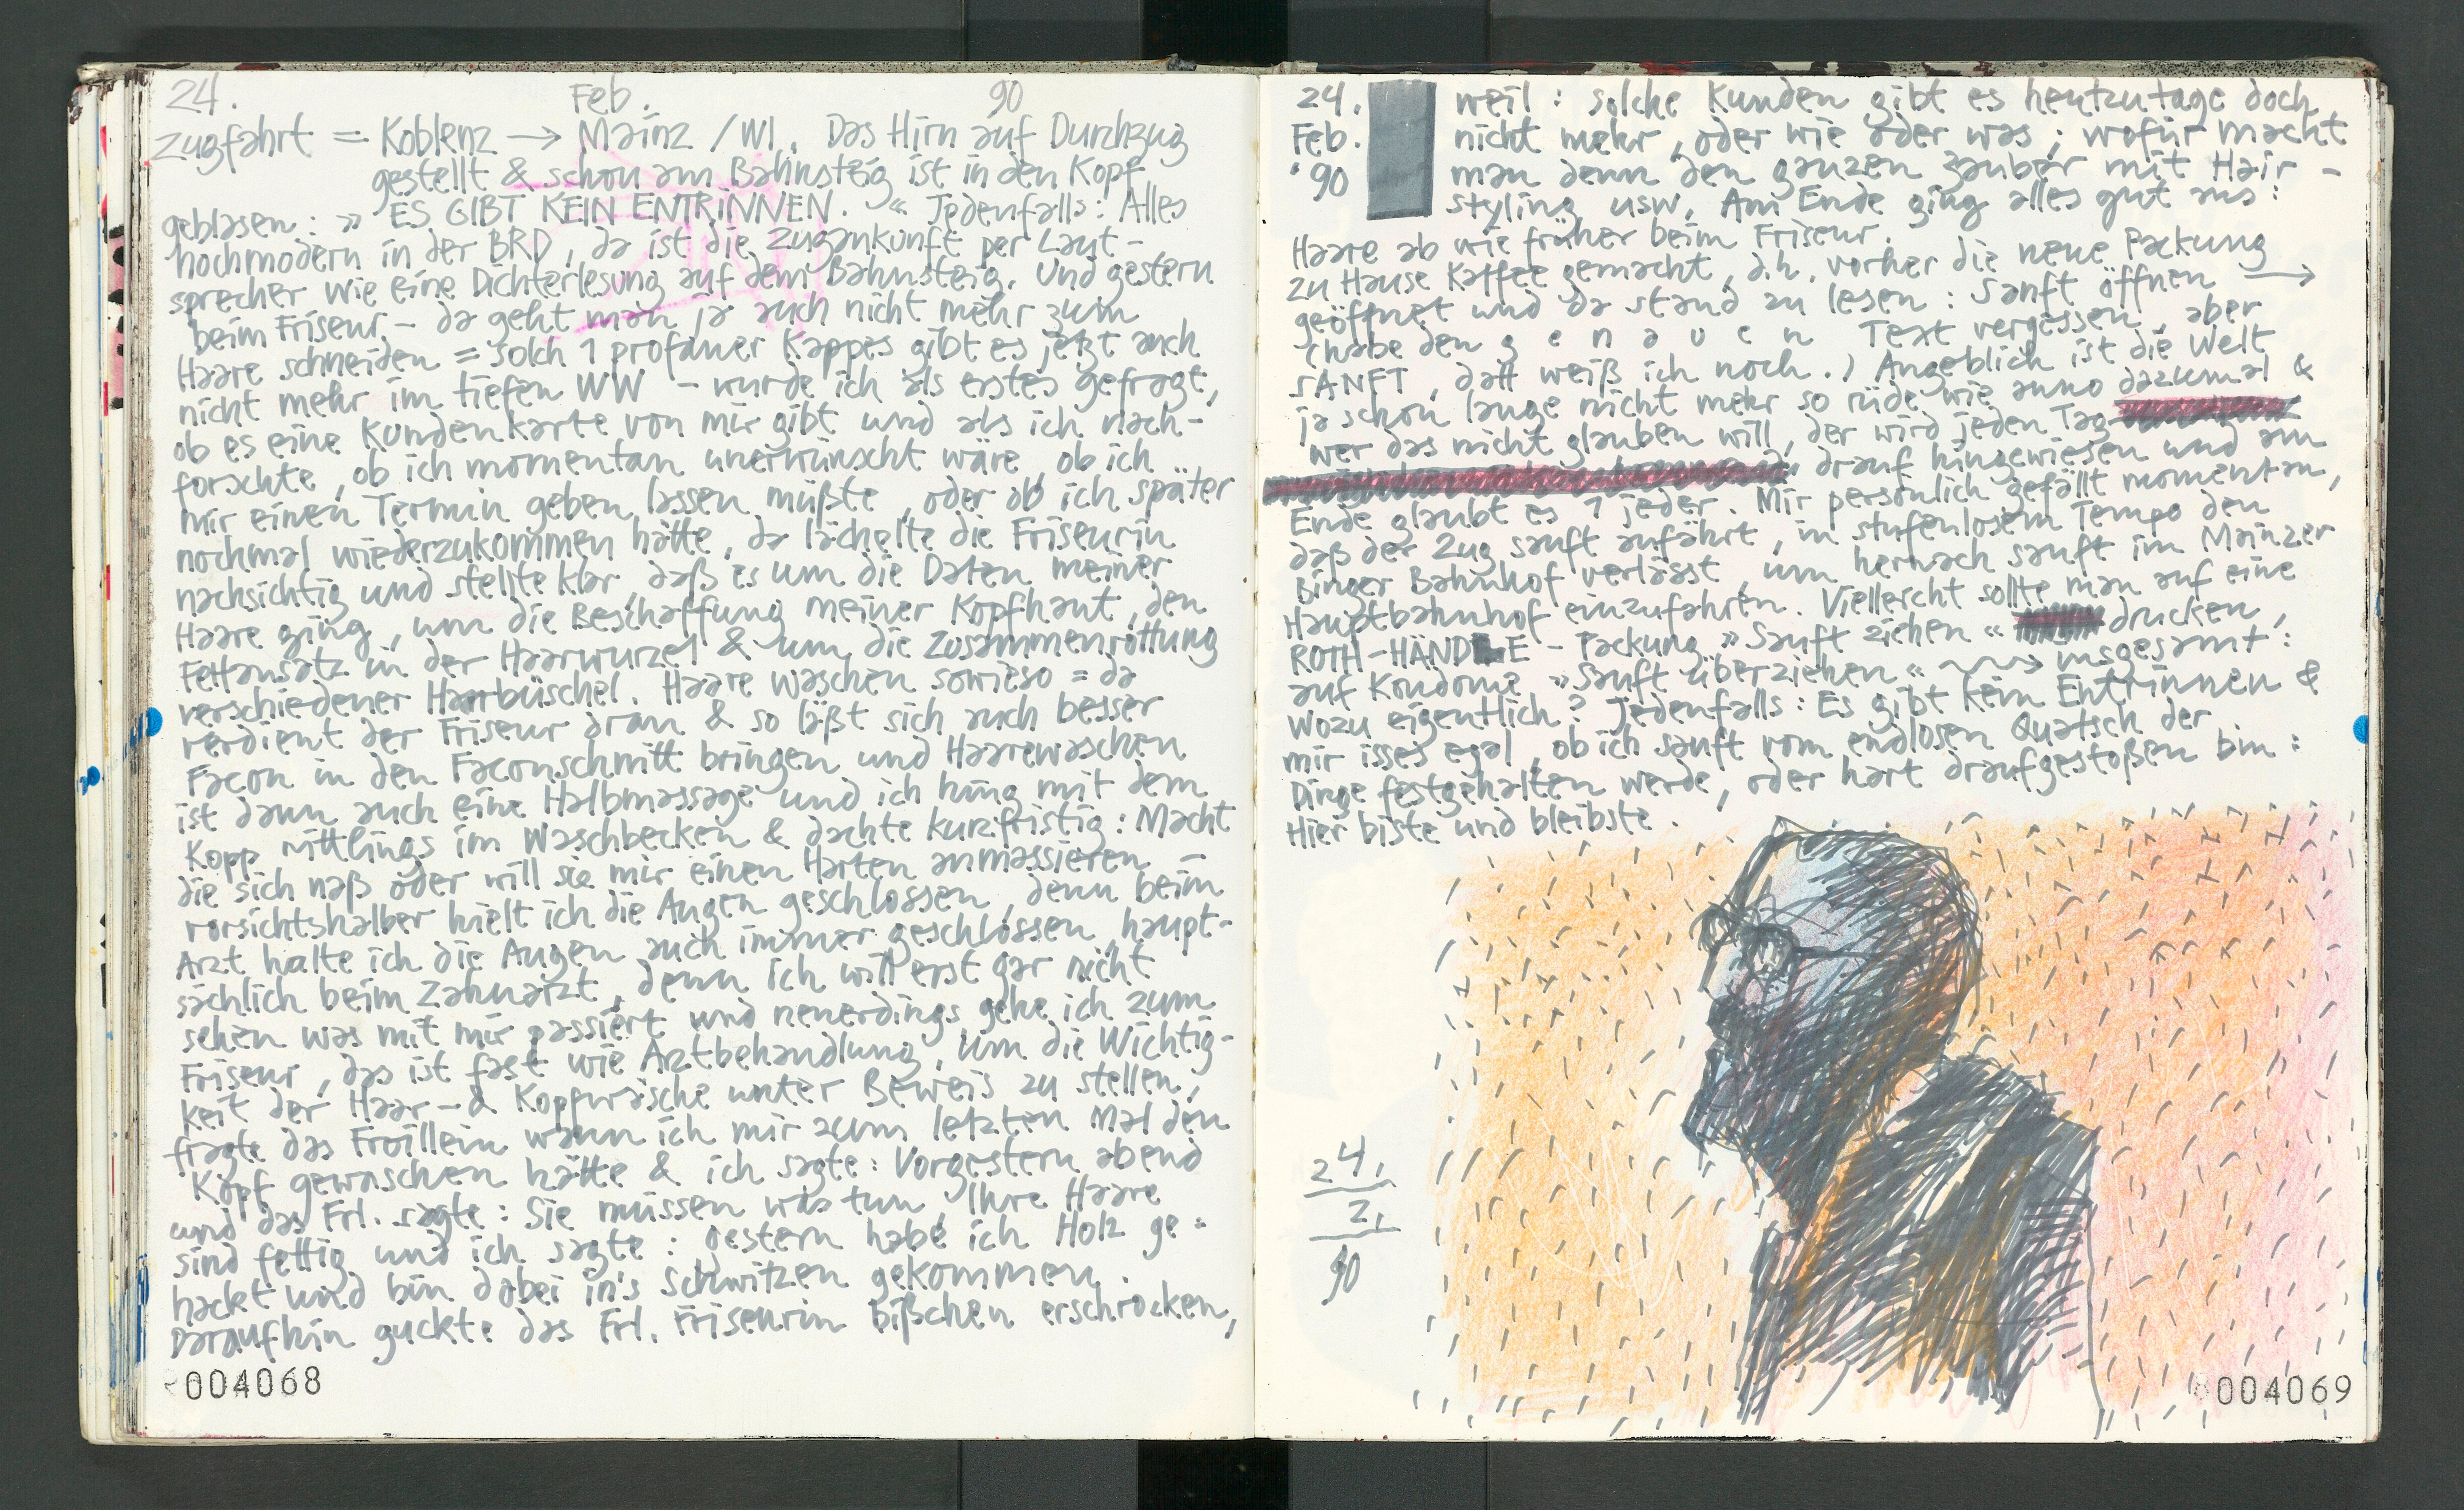 24. Feb. 90
Zugfahrt = Koblenz → Mainz / WI. Das Hirn auf Durchzug
gestellt & schon am Bahnsteig ist in den Kopf
geblasen : » ES GIBT KEIN ENTRINNEN. « Jedenfalls : Alles
hochmodern in der BRD, da ist die Zugankunft per Laut-
sprecher wie eine Dichterlesung auf dem Bahnsteig. Und gestern
beim Friseur – da geht man ja auch nicht mehr zum
Haare schneiden = solch 1 profaner Kappes gibt es jetzt auch
nicht mehr im tiefen WW – wurde ich als erstes gefragt,
ob es eine Kundenkarte von mir gibt und als ich nach-
forschte, ob ich momentan unerwünscht wäre, ob ich
mir einen Termin geben lassen müßte, oder ob ich später
nochmal wiederzukommen hätte, da lächelte die Friseurin
nachsichtig und stellte klar, daß es um die Daten meiner
Haare ging, um die Beschaffung meiner Kopfhaut, den
Fettansatz in der Haarwurzel & um die Zusammenrottung
verschiedener Haarbüschel. Haare waschen sowieso = da
verdient der Friseur dran & so läßt sich auch besser
Facon in den Faconschnitt bringen und Haarewaschen
ist dann auch eine Halbmassage und ich hing mit dem
Kopp rittlings im Waschbecken & dachte kurzfristig : Macht
die sich naß oder will sie mir einen Harten anmassieren –
vorsichtshalber hielt ich die Augen geschlossen, denn beim
Arzt halte ich die Augen auch immer geschlossen, haupt-
sächlich beim Zahnarzt, denn ich will erst gar nicht
sehen was mit mir passiert und neuerdings gehe ich zum
Friseur, das ist fast wie Arztbehandlung. Um die Wichtig-
keit der Haar- & Kopfwäsche unter Beweis zu stellen,
fragte das Froillein wann ich mir zum letzten Mal den
Kopf gewaschen hätte & ich sagte : Vorgestern abend
und das Frl. sagte : Sie müssen was tun, Ihre Haare
sind fettig und ich sagte : gestern habe ich Holz ge=
hackt und bin dabei in's Schwitzen gekommen.
Daraufhin guckte das Frl. Friseurin bißchen erschrocken,
004068
24. Feb. '90
weil : solche Kunden gibt es heutzutage doch
nicht mehr, oder wie oder was ; wofür macht
man denn den ganzen Zauber mit Hair –
styling usw. Am Ende ging alles gut aus :
Haare ab wie früher beim Friseur.
Zu Hause Kaffee gemacht, d.h. vorher die neue Packung
geöffnet und da stand zu lesen : Sanft öffnen →
(habe den g e n a u e n Text vergessen, aber
SANFT, datt weiß ich noch.) Angeblich ist die Welt
ja schon lange nicht mehr so rüde wie anno dazumal &
wer das nicht glauben will, der wird jeden Tag
drauf hingewiesen und am
Ende glaubt es 1 jeder. Mir persönlich gefällt momentan,
daß der Zug sanft anfährt, in stufenlosem Tempo den
Binger Bahnhof verlässt, um hernach sanft im Mainzer
Hauptbahnhof einzufahren. Vielleicht sollte man auf eine
ROTH-HÄNDLE-Packung » Sanft ziehen « drucken,
auf Kondome » Sanft überziehen « → insgesamt :
Wozu eigentlich ? Jedenfalls : Es gibt kein Entrinnen &
mir isses egal, ob ich sanft vom endlosen Quatsch der
Dinge festgehalten werde, oder hart draufgestoßen bin :
Hier biste und bleibste.
24.
2.
90
004069